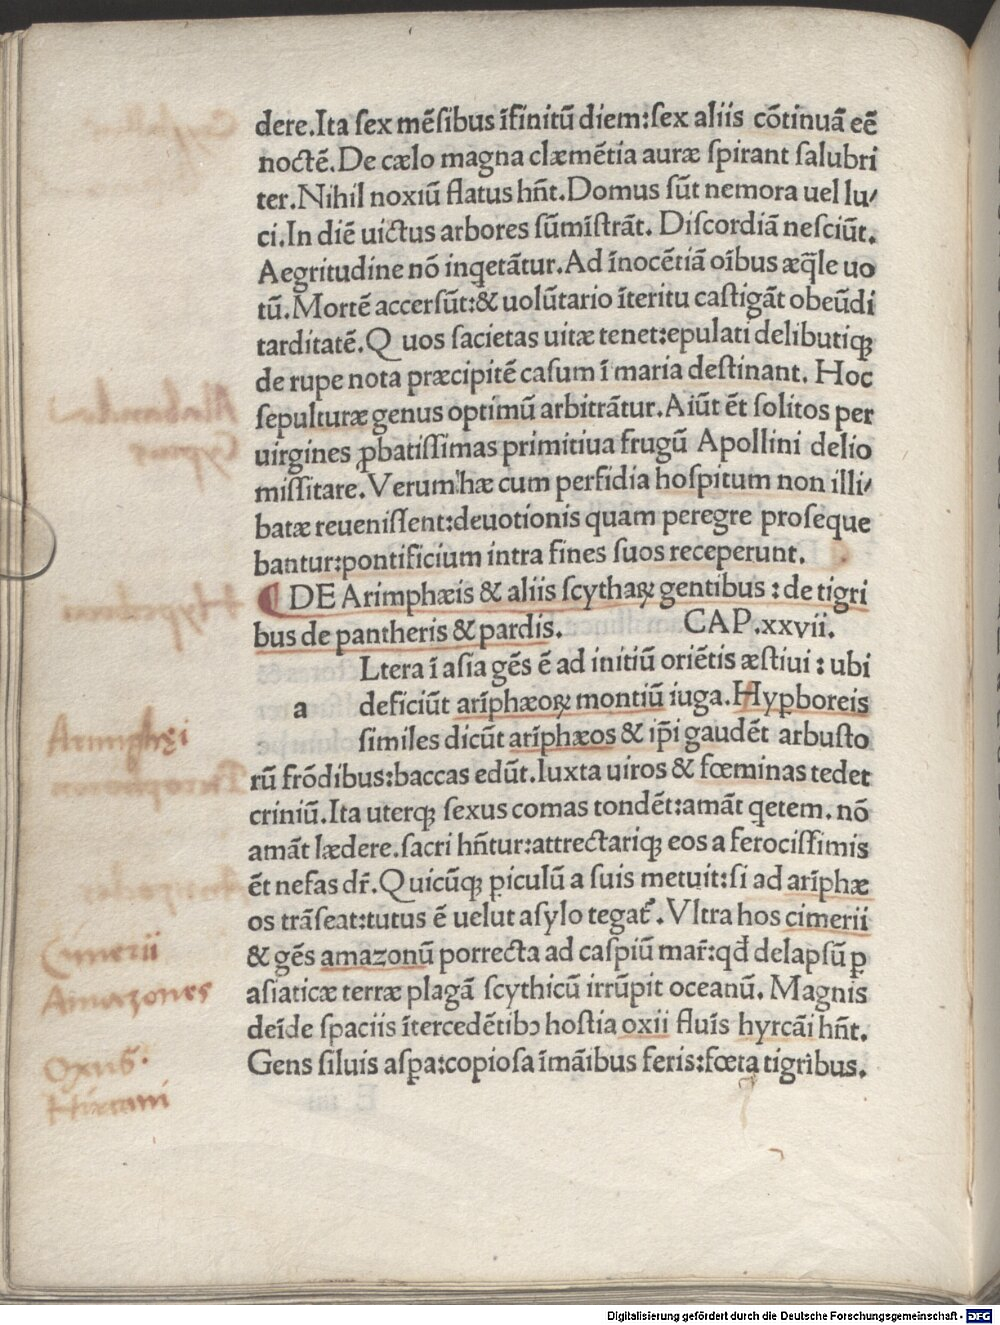 dere.Ita ſex mēſibus īfinitū diem:ſex aliis cōtinuā eē
noctē.De cælo magna clæmētia auræ ſpirant ſalubri
ter.Nihil noxiū flatus hn̄t.Domus ſūt nemora uel lu⸗
ci.In diē uictus arbores ſūmīſtrāt. Diſcordiā neſciūt.
Aegritudine nō inqetātur.Ad īnocētiā oībus æq̄le uo
tū.Mortē accerſūt:& uolūtario īteritu caſtigāt obeūdi
tarditatē.Q uos ſacietas uitæ tenet:epulati delibutiqꝫ
de rupe nota præcipitē caſum ī maria deſtinant. Hoc
ſepulturæ genus optimū arbitrātur.Aiūt ēt ſolitos per
uirgines ꝓbatiſſimas primitiua frugū Apollini delio
miſſitare.Verum hæ cum perfidia hoſpitum non illi⸗
batæ reueniſſent:deuotionis quam peregre proſeque
bantur:pontificium intra fines ſuos receperunt.
¶ DE Arimphæis & aliis ſcythaꝝ gentibus : de tigri
bus de pantheris & pardis. CAP.xxvii.
Ltera ī aſia gēs ē ad initiū oriētis æſtiui : ubi
a deficiūt arīphæoꝝ montiū iuga.Hyꝑboreis
ſimiles dicūt arīphæos & ip̄i gaudēt arbuſto
rū frōdibus:baccas edūt.Iuxta uiros & fœminas tedet
criniū.Ita uterqꝫ ſexus comas tondēt:amāt qetem. nō
amāt lædere.ſacri hn̄tur:attrectariqꝫ eos a ferociſſimis
ēt nefas dr̄.Quicūqꝫ ꝑiculū a ſuis metuit:ſi ad arīphæ
Armiphęi
os trāſeat:tutus ē uelut aſylo tegat᷑.Vltra hos cimerii
Cimerii
& gēs amazonū porrecta ad caſpiū mar̄:qd̄ delapſū ꝑ
Amazones
aſiaticæ terræ plagā ſcythicū irrūpit oceanū. Magnis
deīde ſpaciis ītercedētibꝯ hoſtia oxii fluīs hyrcāi hn̄t.
Oxus.
Hircani
Gens ſiluis aſꝑa:copioſa īmāibus feris:fœta tigribus.
Digitalisierung gefördert durch die Deutsche Forschungsgemeinschaft - DFG